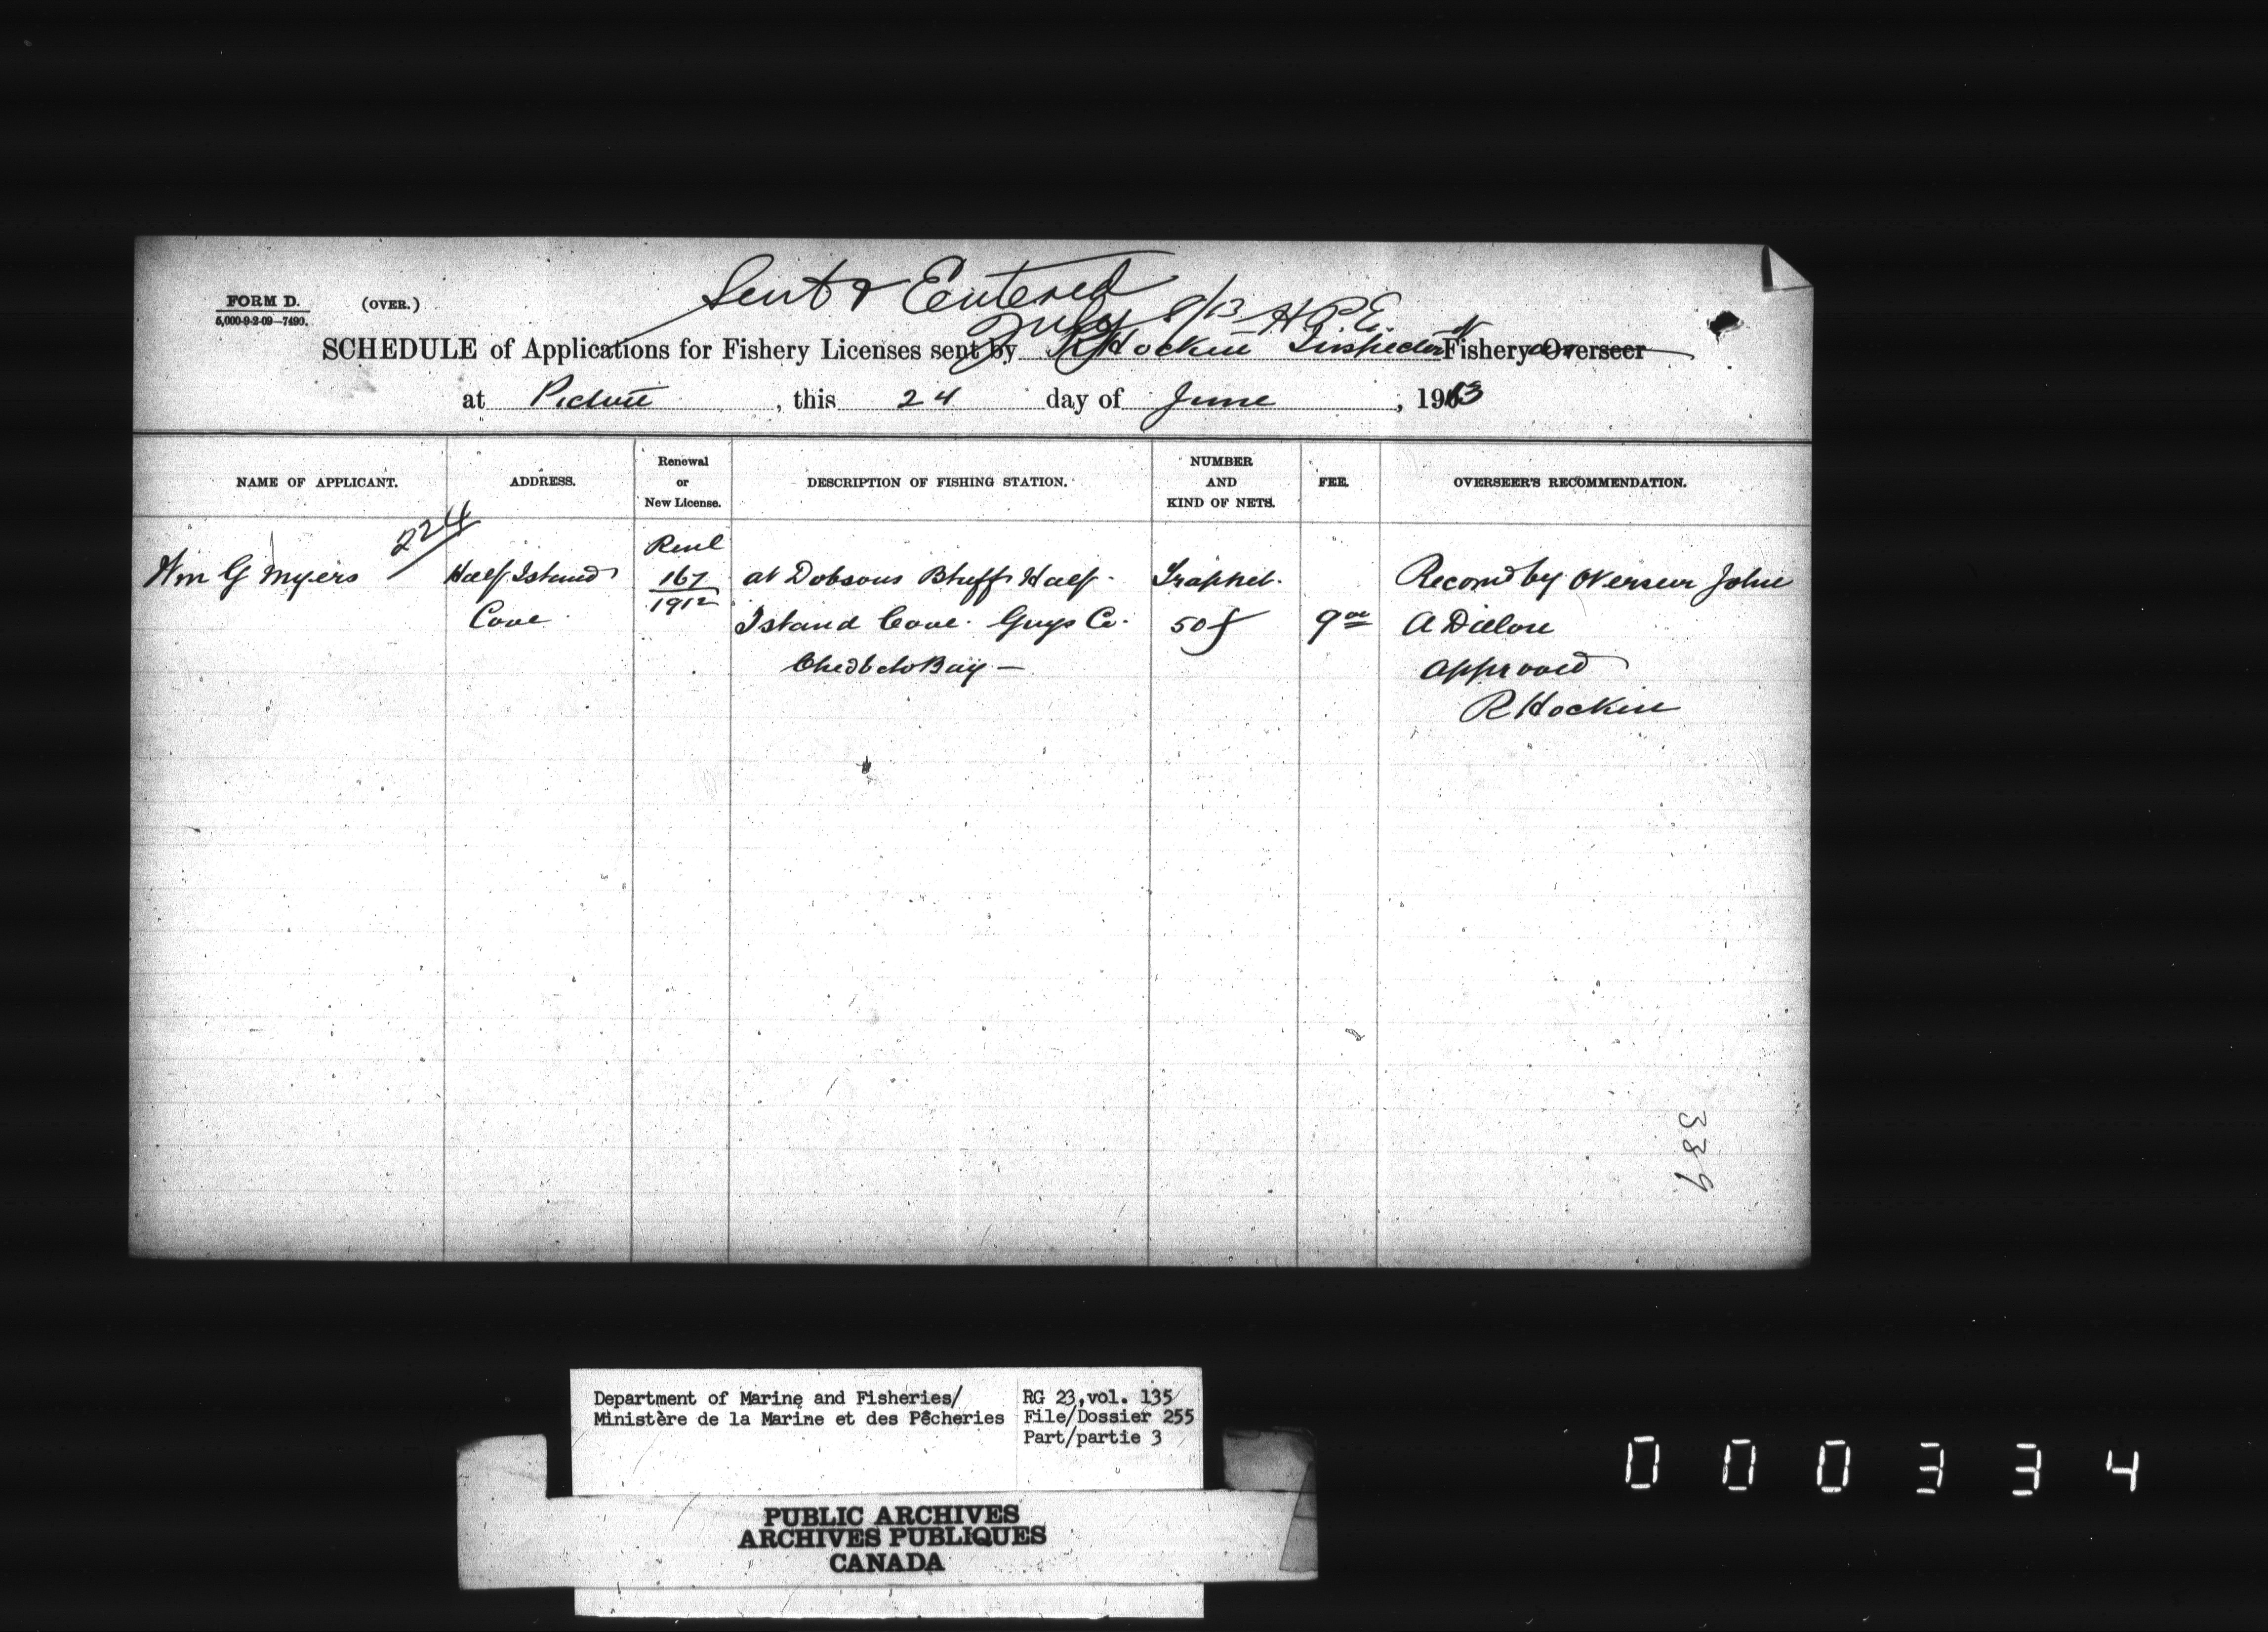 Sent & Entered
July 8/13 H.P.E.
FORM D.
5,000-9-2-09—7490.
(OVER.)
SCHEDULE of Applications for Fishery Licenses sent by R Hockin Inspector of Fishery Overseer
at Pictou, this 24 day of June, 1913
NAME OF APPLICANT.
ADDRESS.
Renewal
or
New License.
DESCRIPTION OF FISHING STATION.
NUMBER
AND
KIND OF NETS.
FEE.
OVERSEER'S RECOMMENDATION.
224
Wm G Myers
Half Island
Cove
Renl
167
1912
at Dobsons Bluff Half
Island Cove. Guys Co.
Chedbcto Bay —
Trapnet.
50 f
9 00
Recomd by Overseer John
A Dillon
approved
R Hockin
339
Department of Marine and Fisheries/
Ministère de la Marine et des Pêcheries
RG 23, vol. 135
File/Dossier 255
Part/partie 3
PUBLIC ARCHIVES
ARCHIVES PUBLIQUES
CANADA
000334